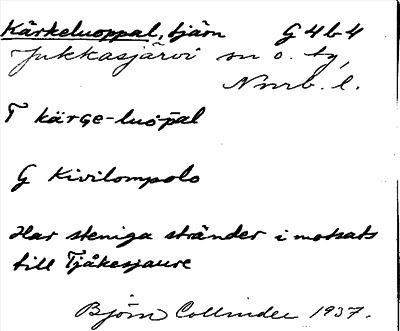 Kärkeluoppal, tjärn G 4 b 4
Jukkasjärvi sn o. tg,
Nnrb. l.
T kärge-luoppal
G Kivilompolo
Har steniga stränder i motsats
till Tjåkesjaure
Björn Collinder 1937.